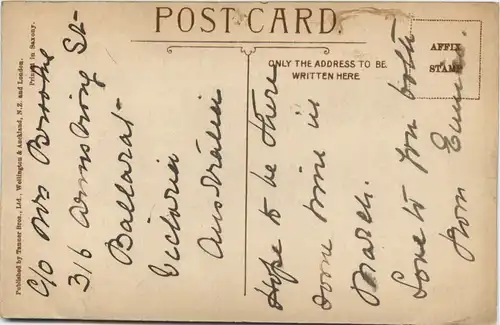 POST CARD.
ONLY THE ADDRESS TO BE
WRITTEN HERE
AFFIX
STAMP
Published by Tanner Bros., Ltd., Wellington & Auckland, N.Z. and London.
Printed in Saxony.
C/o Mrs Brooke
316 Armstrong St
Ballarat
Victoria
Australia
Hope to be there
some time in
March.
Love to you both
from